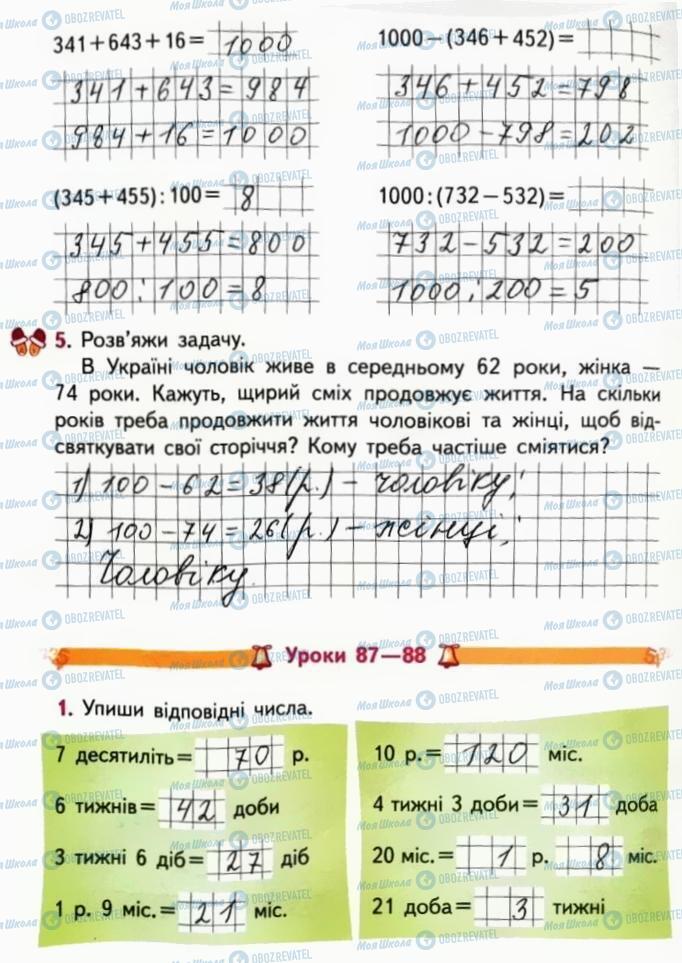 341+643+16= 1000
1000−(346+452)=
341+643=984
346+452=798
984+16=1000
1000−798=202
(345+455):100= 8
1000:(732−532)=
345+455=800
732−532=200
800:100=8
1000:200=5
5. Розв'яжи задачу.
В Україні чоловік живе в середньому 62 роки, жінка —
74 роки. Кажуть, щирий сміх продовжує життя. На скільки
років треба продовжити життя чоловікові та жінці, щоб від-
святкувати свої сторіччя? Кому треба частіше сміятися?
1) 100−62=38(р.) − чоловіку;
2) 100−74=26(р.) − жінці;
Чоловіку.
Уроки 87—88
1. Упиши відповідні числа.
7 десятиліть= 70 р.
10 р.= 120 міс.
6 тижнів= 42 доби
4 тижні 3 доби= 31 доба
3 тижні 6 діб= 27 діб
20 міс.= 1 р. 8 міс.
1 р. 9 міс.= 21 міс.
21 доба= 3 тижні